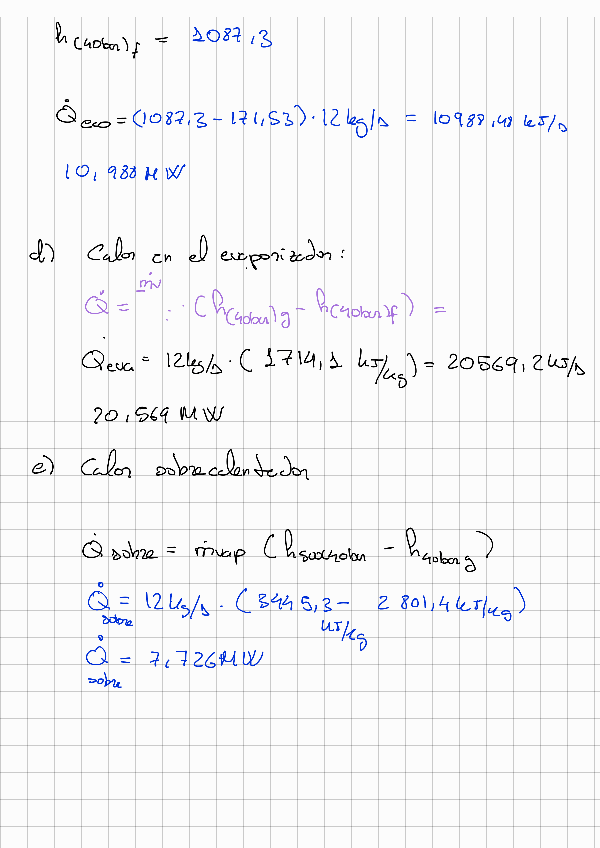 h(40bar)f = 1087,3
Q̇eco = (1087,3 - 171,53) · 12 kg/s = 10988,48 kJ/s
10,988 MW
d) Calor en el evaporizador:
Q̇ = ṁv · (h(40bar)g - h(40bar)f) =
Qeva = 12kg/s · ( 1714,1 kJ/kg) = 20569,2 kJ/s
20,569 MW
e) Calor sobrecalentador
Q̇sobre = ṁvap (h500x40bar - h40barg)
Q̇sobre = 12 kg/s · (3445,3 kJ/kg - 2801,4 kJ/kg)
Q̇sobre = 7,726 MW